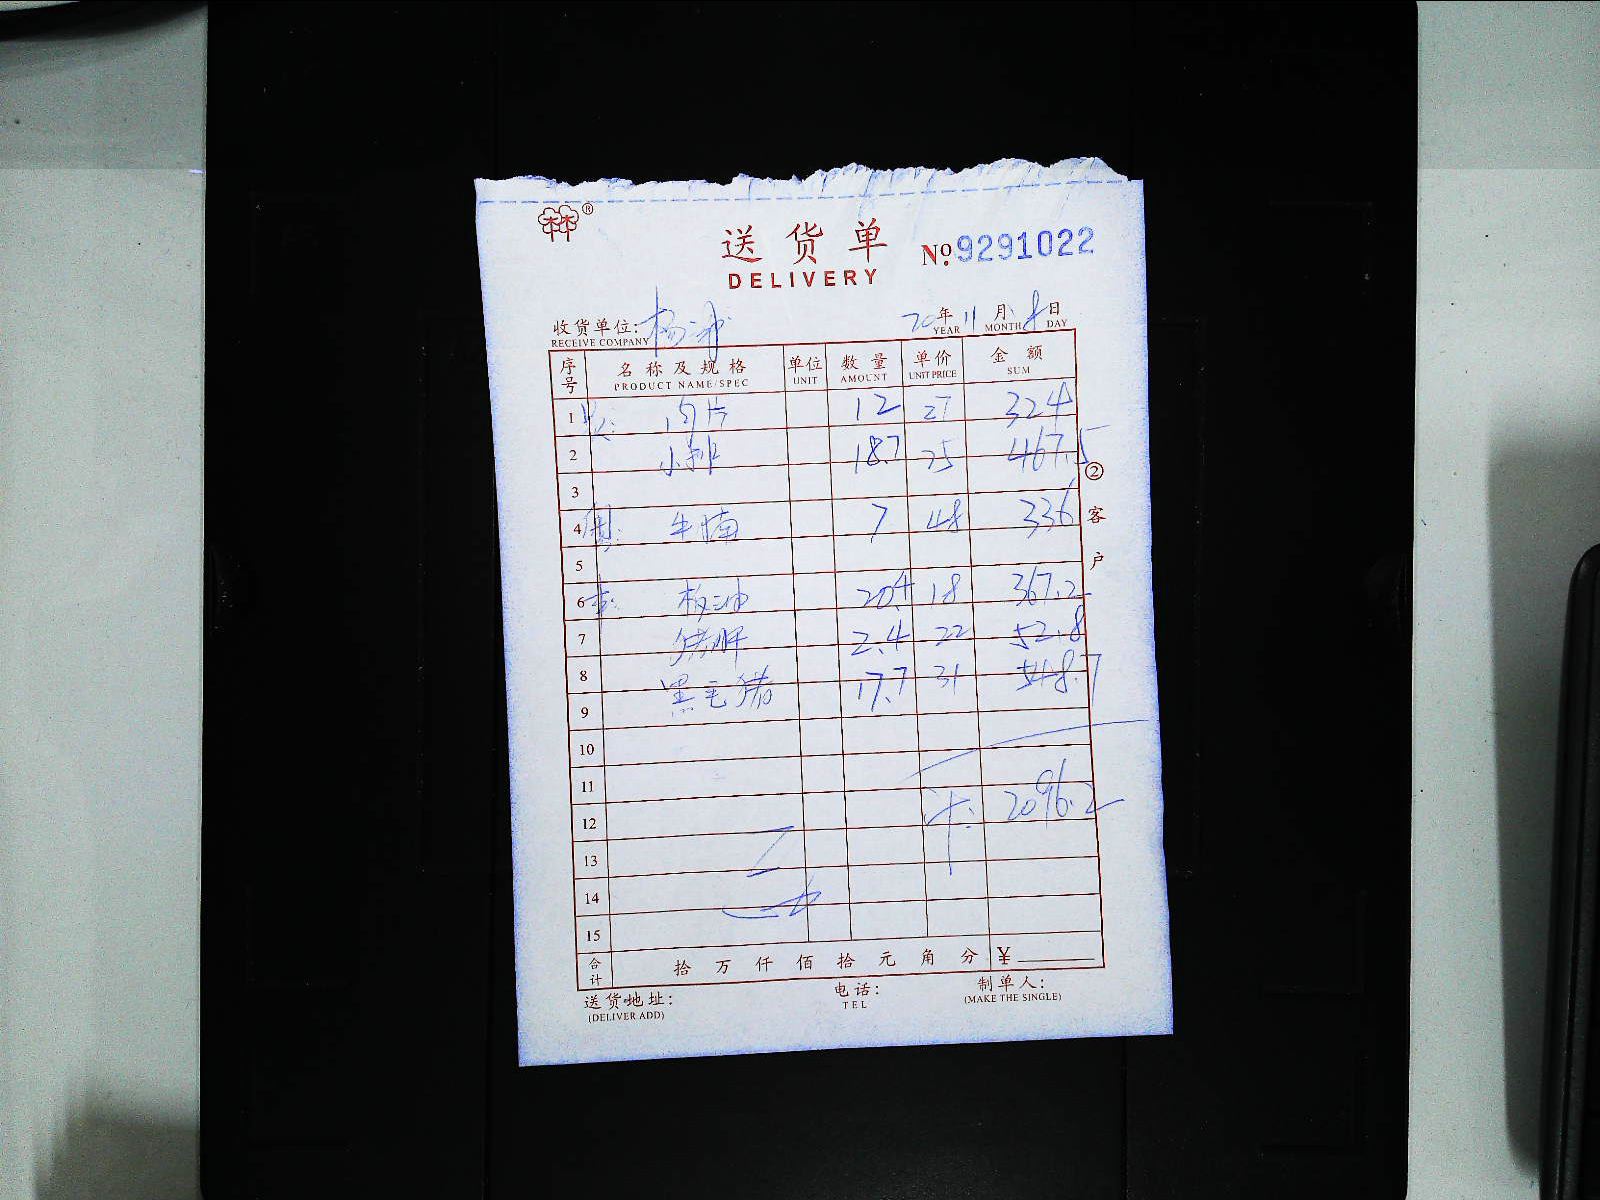 林®
送货单 №9291022
DELIVERY
收货单位: 杨 20年11月8日
RECEIVE COMPANY YEAR MONTH DAY
序号 名称及规格 单位 数量 单价 金额
PRODUCT NAME/SPEC UNIT AMOUNT UNIT PRICE SUM
1 肉片 12 27 324
2 小排 18.7 25 467.5
3
4 牛腩 7 48 336
5
6 板油 20.4 18 367.2
7 猪肝 2.4 22 52.8
8 黑毛猪 17.7 31 548.7
9
10
11
12 计: 2096.2
13
14
15
合计 拾万仟佰拾元角分 ¥
送货地址: 电话: 制单人:
(DELIVER ADD) TEL (MAKE THE SINGLE)
②客户